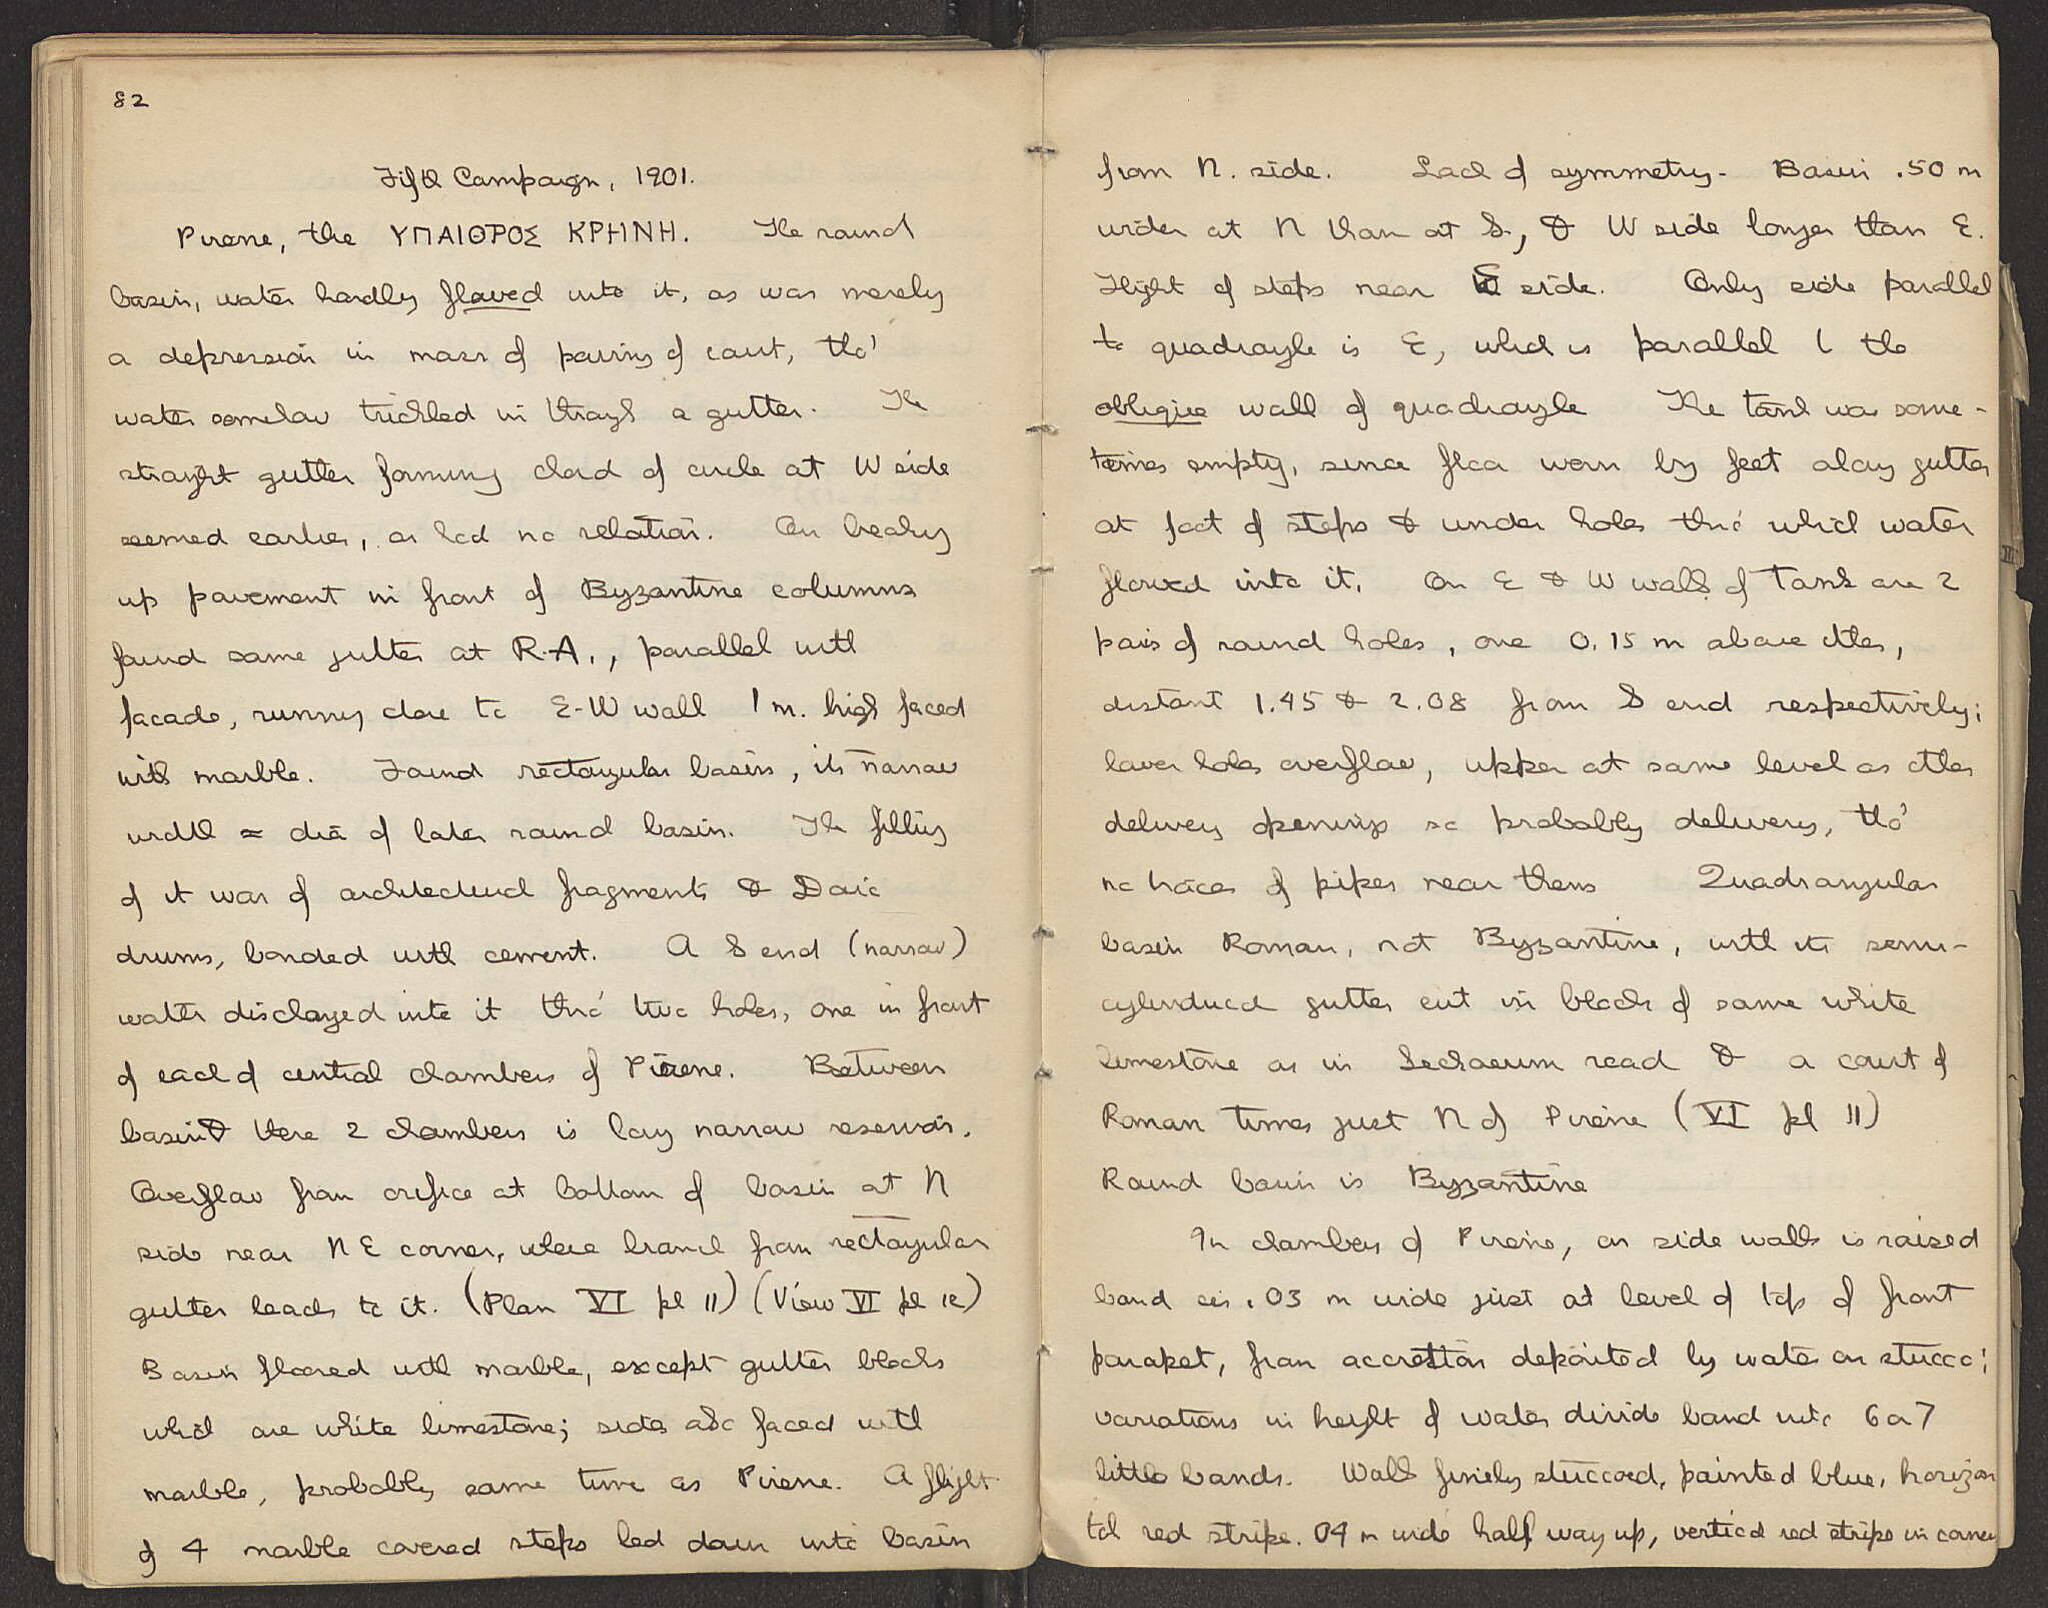 82
Fifth Campaign, 1901.
Pirene, the ΥΠΑΙΘΡΟΣ ΚΡΗΝΗ. The round
basin, water hardly flowed into it, as was merely
a depression in mass of paving of court, tho'
water somehow trickled in through a gutter. The
straight gutter forming chord of circle at W side
seemed earlier, as had no relation. On breaking
up pavement in front of Byzantine columns
found same gutter at R.A., parallel with
facade, running close to E-W wall 1 m. high faced
with marble. Found rectangular basin, its narrow
width = dia of later round basin. The filling
of it was of architectural fragments & Doric
drums, bonded with cement. A S end (narrow)
water discharged into it thro' two holes, one in front
of each of central chambers of Pirene. Between
basin & these 2 chambers is long narrow reservoir.
Overflow from orifice at bottom of basin at N
side near NE corner, where branch from rectangular
gutter leads to it. (Plan VI pl 11) (View VI pl 10)
Basin floored with marble, except gutter blocks
which are white limestone; sides also faced with
marble, probably same time as Pirene. A flight
of 4 marble covered steps led down into basin
from N. side. Lack of symmetry - Basin .50 m
wider at N than at S., & W side longer than E.
Flight of steps near E side. Only side parallel
to quadrangle is E, which is parallel to the
oblique wall of quadrangle The tank was some-
times empty, since floor worn by feet along gutter
at foot of steps & under holes thro' which water
flowed into it. On E & W walls of tank are 2
pairs of round holes, one 0.15 m above other,
distant 1.45 & 2.08 from S end respectively;
lower holes overflow, upper at same level as other
delivery openings so probably delivery, tho'
no traces of pipes near them Quadrangular
basin Roman, not Byzantine, with its semi-
cylindrical gutter cut in blocks of same white
limestone as in Lechaeum road & a court of
Roman times just N of Pirene (VI pl 11)
Round basin is Byzantine
In chambers of Pirene, on side walls is raised
band .03 m wide just at level of top of front
parapet, from accretion deposited by water on stucco;
variations in height of water divide band into 6 or 7
little bands. Walls finely stuccoed, painted blue, horizon
tal red stripe .04 m wide half way up, vertical red stripe in corner